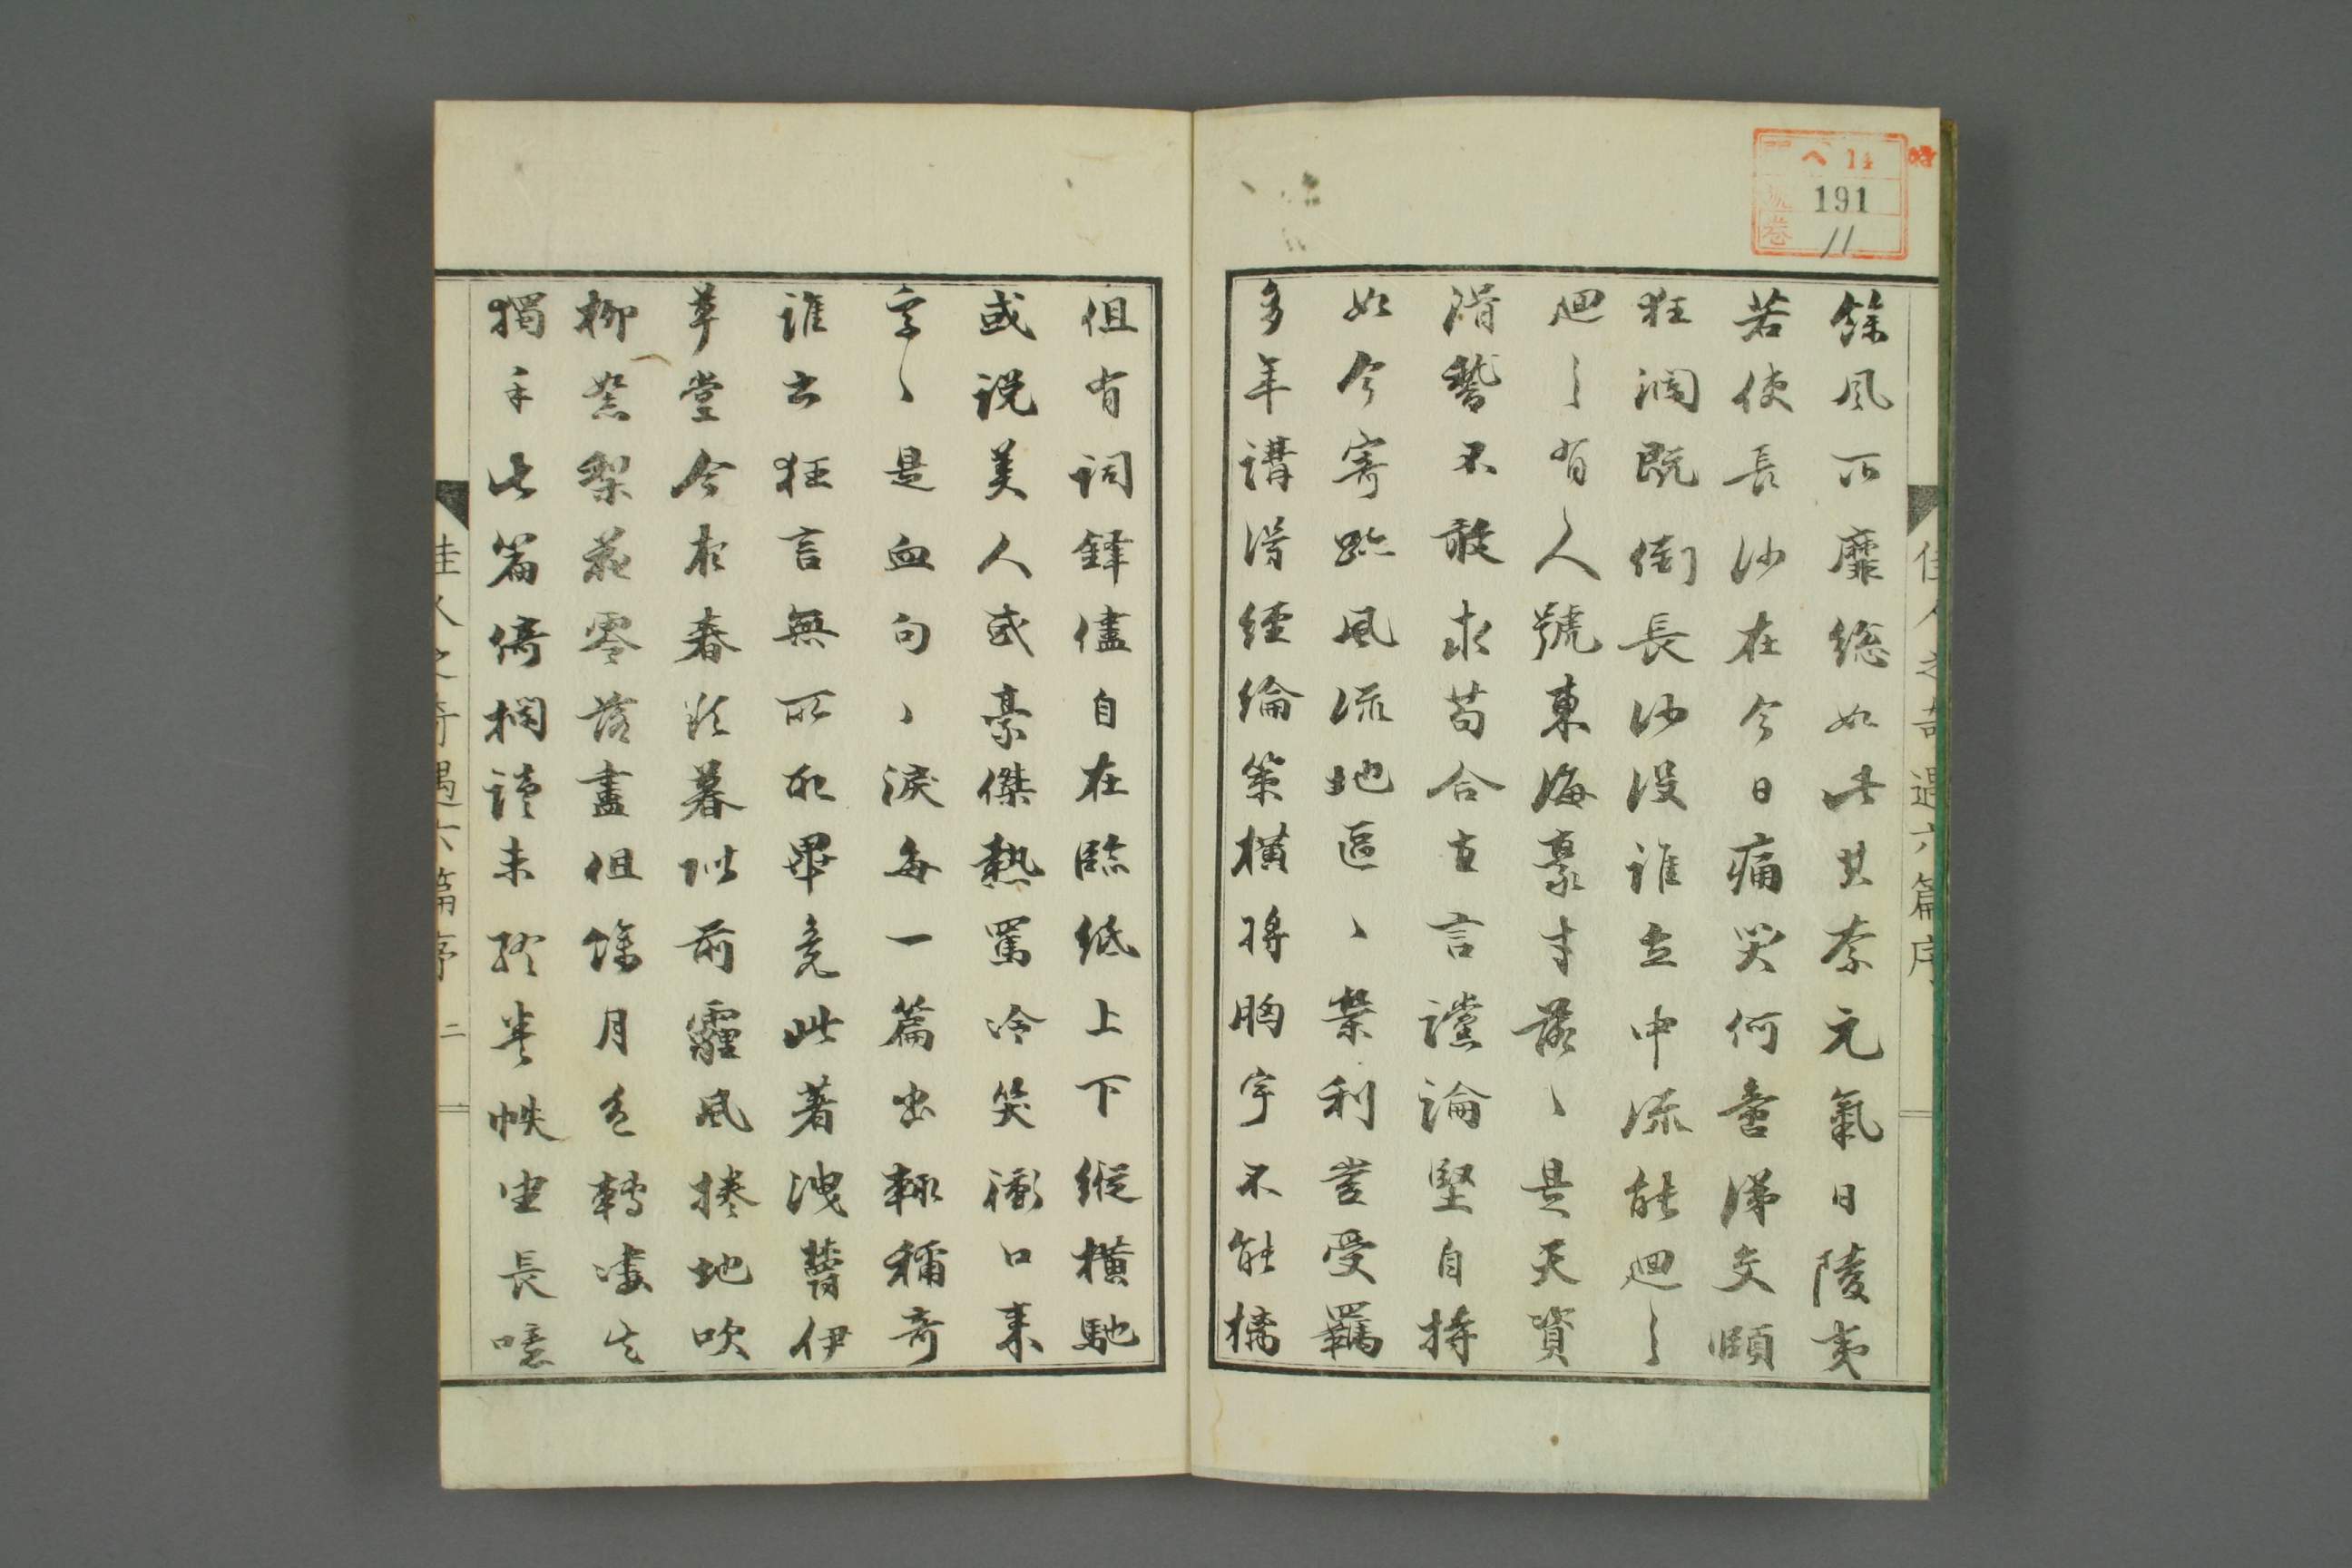 ヘ 14
191
11
號
卷
佳人之奇遇六篇序
餘風所靡総如此其奈元氣日陵夷
若使長沙在今日痛哭何啻涕交頤
狂瀾既倒長沙没誰立中流能廻〻
廻〻有人號東海豪才落〻是天資
得暫不敢求苟合直言讜論堅自持
如今寄跡風流地區〻業利豈受羈
多年講得經綸策橫将胸宇不能摛
但有詞鋒儘自在臨紙上下縱橫馳
或説美人或豪傑熱罵冷笑衝口来
字〻是血句〻淚每一篇出輙稱奇
誰云狂言無所取畢竟此著洩鬱伊
草堂今夜春将暮做前霾風捲地吹
柳絮梨花零落盡但餘月色轉凄其
獨手此篇倚欄讀未終巻帙坐長噫
佳人之奇遇六篇序 二